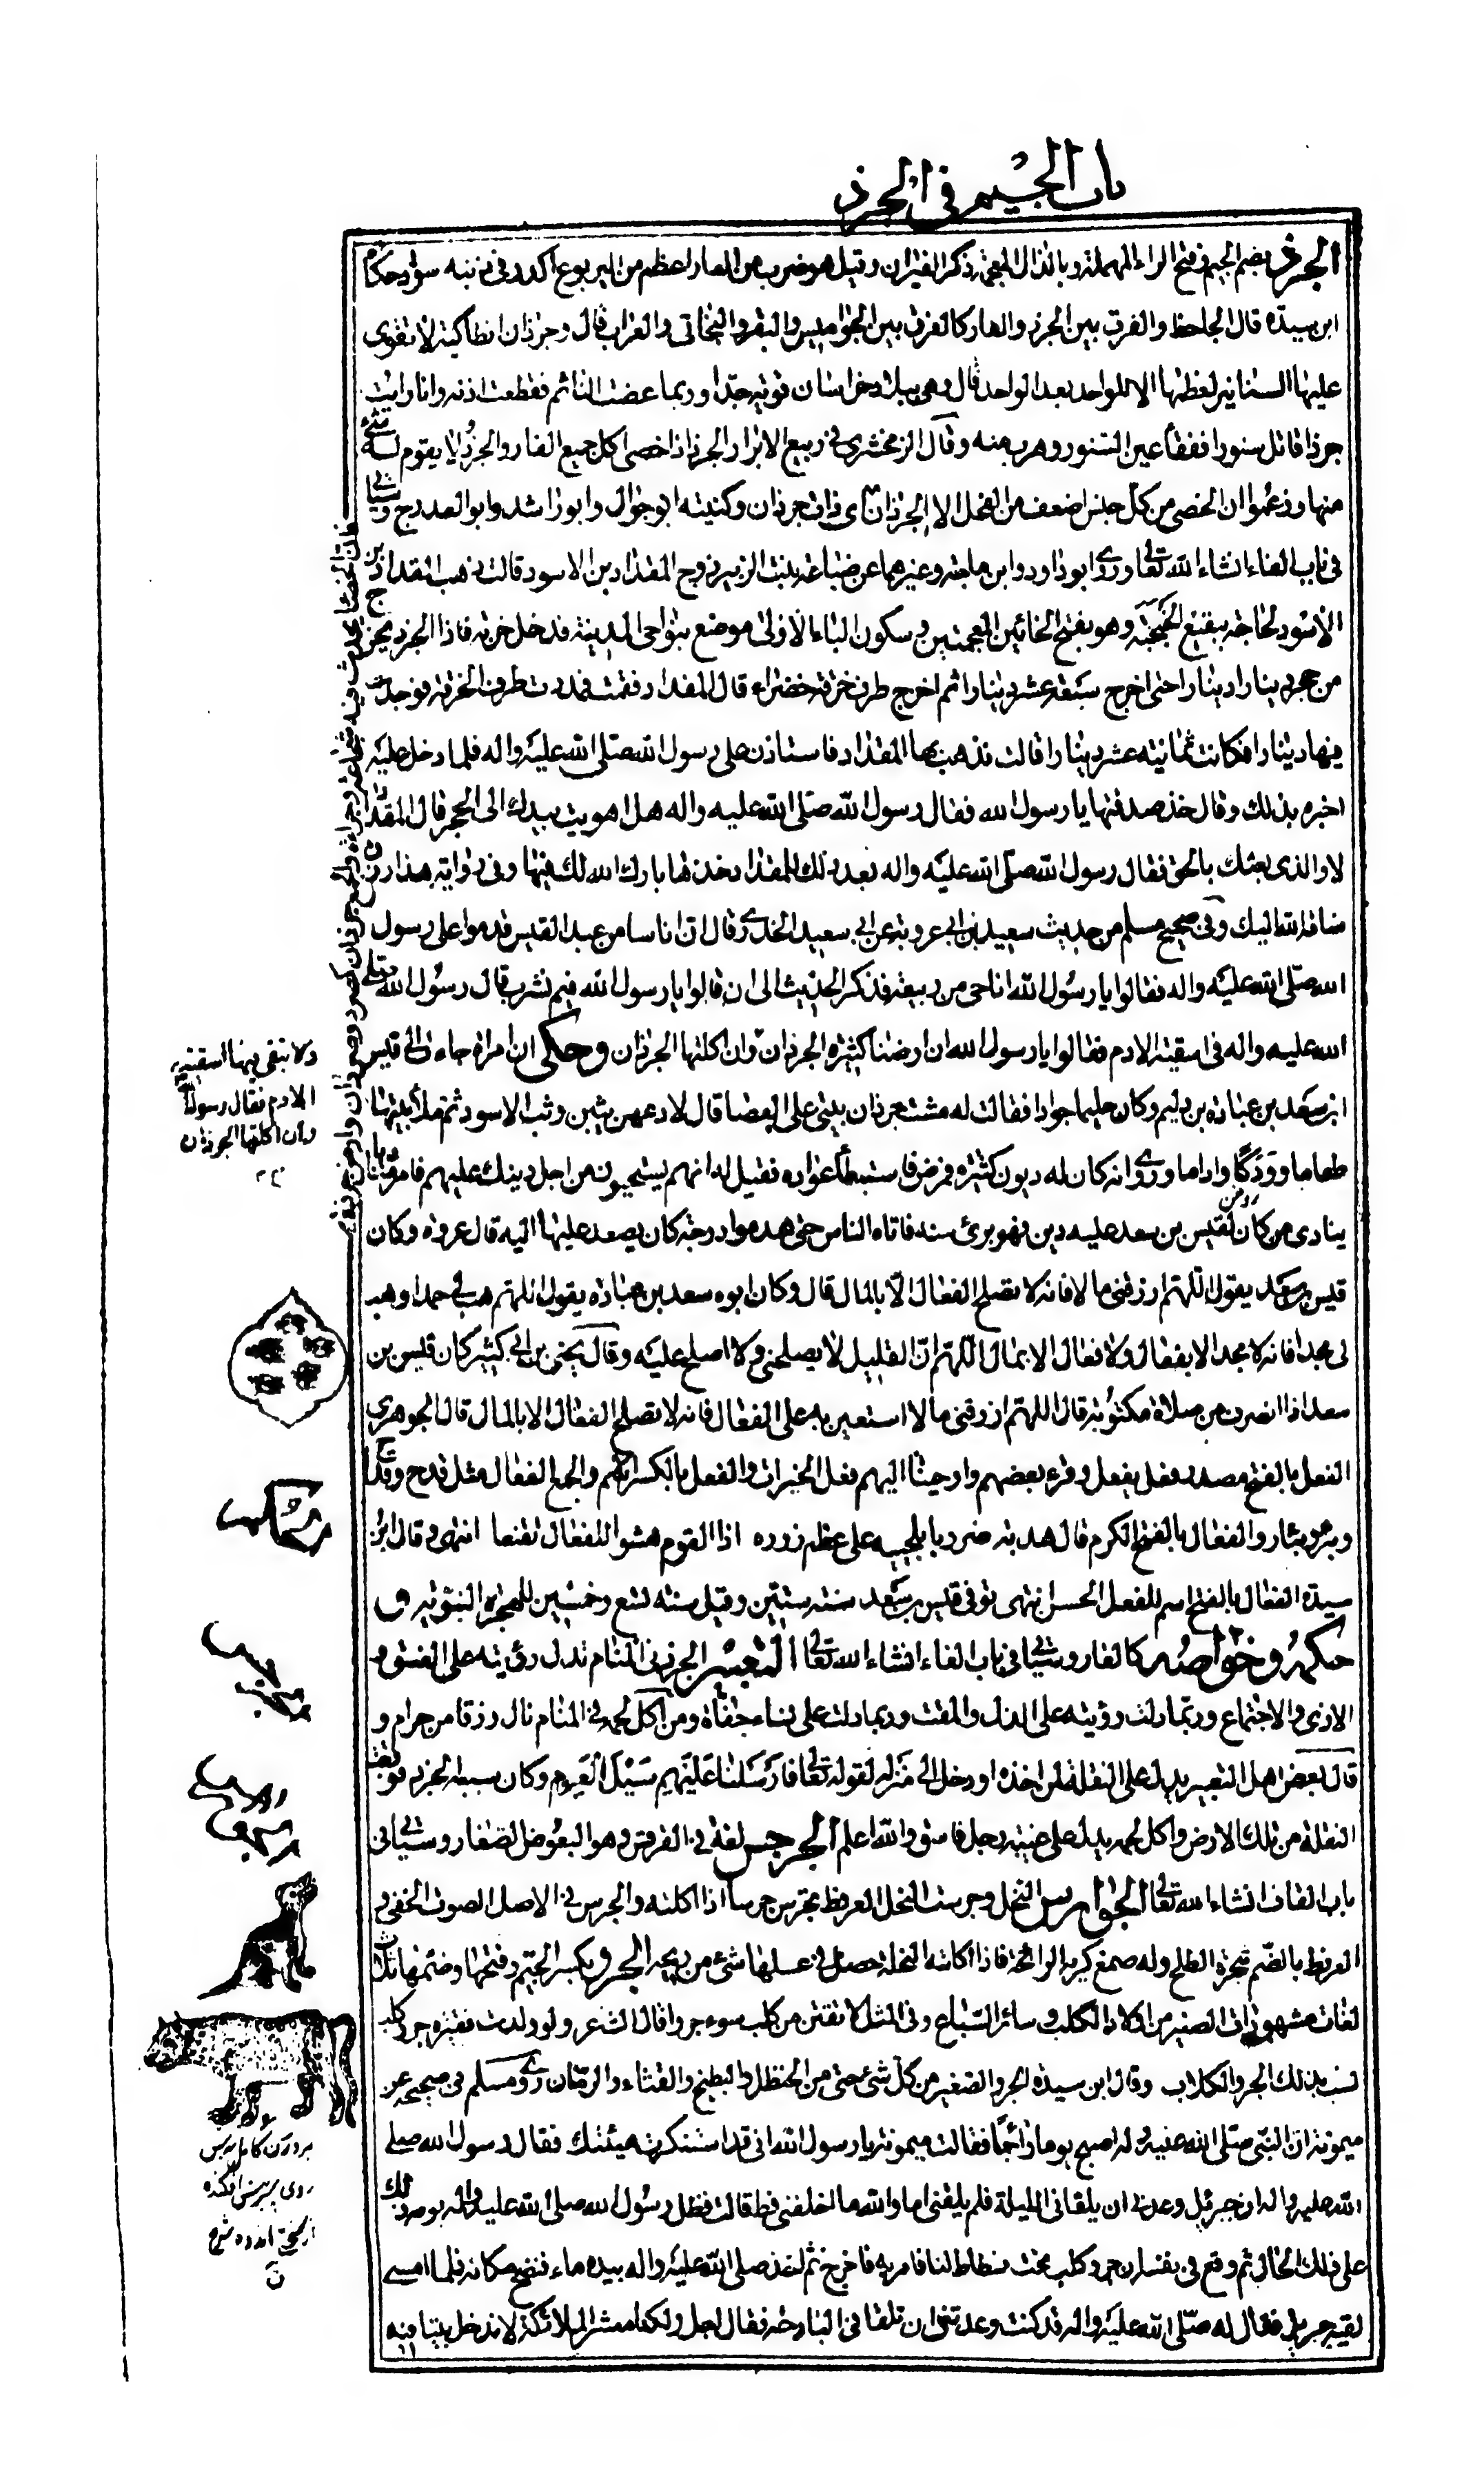 باب الجيم في الجرذ
الجرذ بضم الجيم وفتح الراء المهملة وبالذال المعجمة ذكر الفيران وقيل هو ضرب من الفار اعظم من اليربوع اكدر في ذنبه سواد حكاه
ابن سيدة قال الجاحظ والفرق بين الجرذ والفار كالفرق بين الجواميس والبقر والبخاتي والعراب قال وجرذان انطاكية لا تقوى
عليها السنانير لعظمها الا الواحد بعد الواحد قال وهي ببلاد خراسان قوية جدا وربما عضت النائم فقطعت اذنه وانا رايت
جرذا قاتل سنورا ففقأ عين السنور وهرب منه وقال الزمخشري في ربيع الابرار الجرذ اذا خصى اكل جميع الفار والجرذ لا يقوم له شئ
منها وزعموا ان الخصى من كل جنس اضعف من الفحل الا الجرذان وكنيته ابو جوال وابو راشد وابو العدرج وسياتي
في باب الفاء انشاء الله تعالى وروى ابوداود وابن ماجة وغيرهما عن ضباعة بنت الزبير زوج المقداد بن الاسود قالت ذهب المقداد بن
الاسود لحاجة ببقيع الخبخبة وهو بفتح الخائين المعجمتين وسكون الباء الاولى موضع بنواحي المدينة فدخل خربة فاذا الجرذ يخرج
من جحر دينارا دينارا حتى اخرج سبعة عشر دينارا ثم اخرج طرف خرقة خضراء قال المقداد فقمت فمددت طرف الخرقة فوجدت
فيها دينارا فكانت ثمانية عشر دينارا قالت فذهب بها المقداد فاستاذن على رسول الله صلى الله عليه واله فلما دخل عليه
اخبره بذلك وقال خذ صدقتها يا رسول الله فقال رسول الله صلى الله عليه واله هل اهويت بيدك الى الجحر قال المقداد
لا والذي بعثك بالحق فقال رسول الله صلى الله عليه واله بعد ذلك للمقداد خذها بارك الله لك فيها وفي رواية هذا رزق
ساقه الله اليك وفي صحيح مسلم من حديث سعيد بن ابي عروبة عن ابي سعيد الخدري قال ان اناسا من عبد القيس قدموا على رسول
الله صلى الله عليه واله فقالوا يا رسول الله انا حي من ربيعة فذكر الحديث الى ان قالوا يا رسول الله فيم نشرب قال رسول الله صلى
الله عليه واله في اسقية الادم فقالوا يا رسول الله ان ارضنا كثيرة الجرذان وان اكلتها الجرذان وحكى ان امراة جاءت الى قيس
ابن سعد بن عبادة بن دليم وكان حليما جوادا فقالت له مشت جرذان بيتي على العصا قال لادعهن يثبن وثب الاسود ثم ملأ بيتها
طعاما وودكا واداما وروى انه كان له ديون كثيرة فمرض فاستبطأ عواده فقيل له انهم يستحيون من اجل دينك عليهم فامر مناديا
ينادي من كان لقيس بن سعد عليه دين فهو برئ منه فاتاه الناس حتى هدموا درجة كان يصعد عليها اليه قال عروة وكان
قيس بن سعد يقول اللهم ارزقني مالا فانه لا تصلح الفعال الا بالمال قال وكان ابوه سعد بن عبادة يقول اللهم هب لي حمدا وهب
لي مجدا فانه لا مجد الا بفعال ولا فعال الا بمال اللهم ان القليل لا يصلحني ولا اصلح عليه وقال يحيى بن ابي كثير كان قيس بن
سعد اذا انصرف من صلاة مكتوبة قال اللهم ارزقني مالا استعين به على الفعال فانه لا تصلح الفعال الا بالمال قال الجوهري
الفعل بالفتح مصدر فعل يفعل وقرء بعضهم واوحينا اليهم فعل الخيرات والفعل بالكسر الاسم والجمع الفعال مثل قدح وقداح
وبئر وبئار والفعال بالفتح الكرم قال هدبة ضروبا بلحييه على عظم زوره اذا القوم هشوا للفعال تقنعا انتهى وقال ابن
سيدة الفعال بالفتح اسم للفعل الحسن انتهى توفي قيس بن سعد سنة ستين وقيل سنة تسع وخمسين للهجرة النبوية و
حكمه وخواصه كالفار وسياتي في باب الفاء انشاء الله تعالى التعبير الجرذ في المنام تدل رؤيته على الفسق و
الاذى والاجتماع وربما دلت رؤيته على الذل والمقت وربما دلت على نساء جفاة ومن اكل لحمه في المنام نال رزقا من حرام و
قال بعض اهل التعبير يدل على النقلة لمن اخذه او دخل الى منزله لقوله تعالى فارسلنا عليهم سيل العرم وكان سببه الجرذ فوقعت
النقلة من تلك الارض واكل لحمه يدل على غيبة رجل فاسق والله اعلم الجرجس لغة في القرقس وهو البعوض الصغار وسياتي في
باب القاف انشاء الله تعالى الجوارس النحل وجرست النحل العرفط تجرس جرسا اذا اكلته والجرس في الاصل الصوت الخفي و
العرفط بالضم شجرة الطلح وله صمغ كريه الرائحة فاذا اكلته النحلة حصل في عسلها شئ من ريحه الجرو بكسر الجيم وفتحها وضمها ثلاث
لغات مشهورات الصغير من اولاد الكلب وسائر السباع وفي المثل لا تقتن من كلب سوء جروا قال الشاعر ولو ولدت فقيرة جرو كلب
لسب بذلك الجرو الكلاب وقال ابن سيدة الجرو الصغير من كل شئ حتى من الحنظل والبطيخ والقثاء والرمان روى مسلم في صحيحه عن
ميمونة ان النبي صلى الله عليه واله اصبح يوما واجما فقالت ميمونة يا رسول الله اني قد استنكرت هيئتك فقال رسول الله صلى
الله عليه واله ان جبريل وعدني ان يلقاني الليلة فلم يلقني اما والله ما اخلفني قط قالت فظل رسول الله صلى الله عليه واله يومه ذلك
على ذلك الحال ثم وقع في نفسه ان جرو كلب تحت فسطاط لنا فامر به فاخرج ثم اخذ صلى الله عليه واله بيده ماء فنضح مكانه فلما امسى
لقيه جبريل فقال له صلى الله عليه واله قد كنت وعدتني ان تلقاني البارحة فقال اجل ولكنا معشر الملائكة لا ندخل بيتا فيه
ولا تبقى بها اسقية
الادم فقال رسول الله
وان اكلتها الجرذان